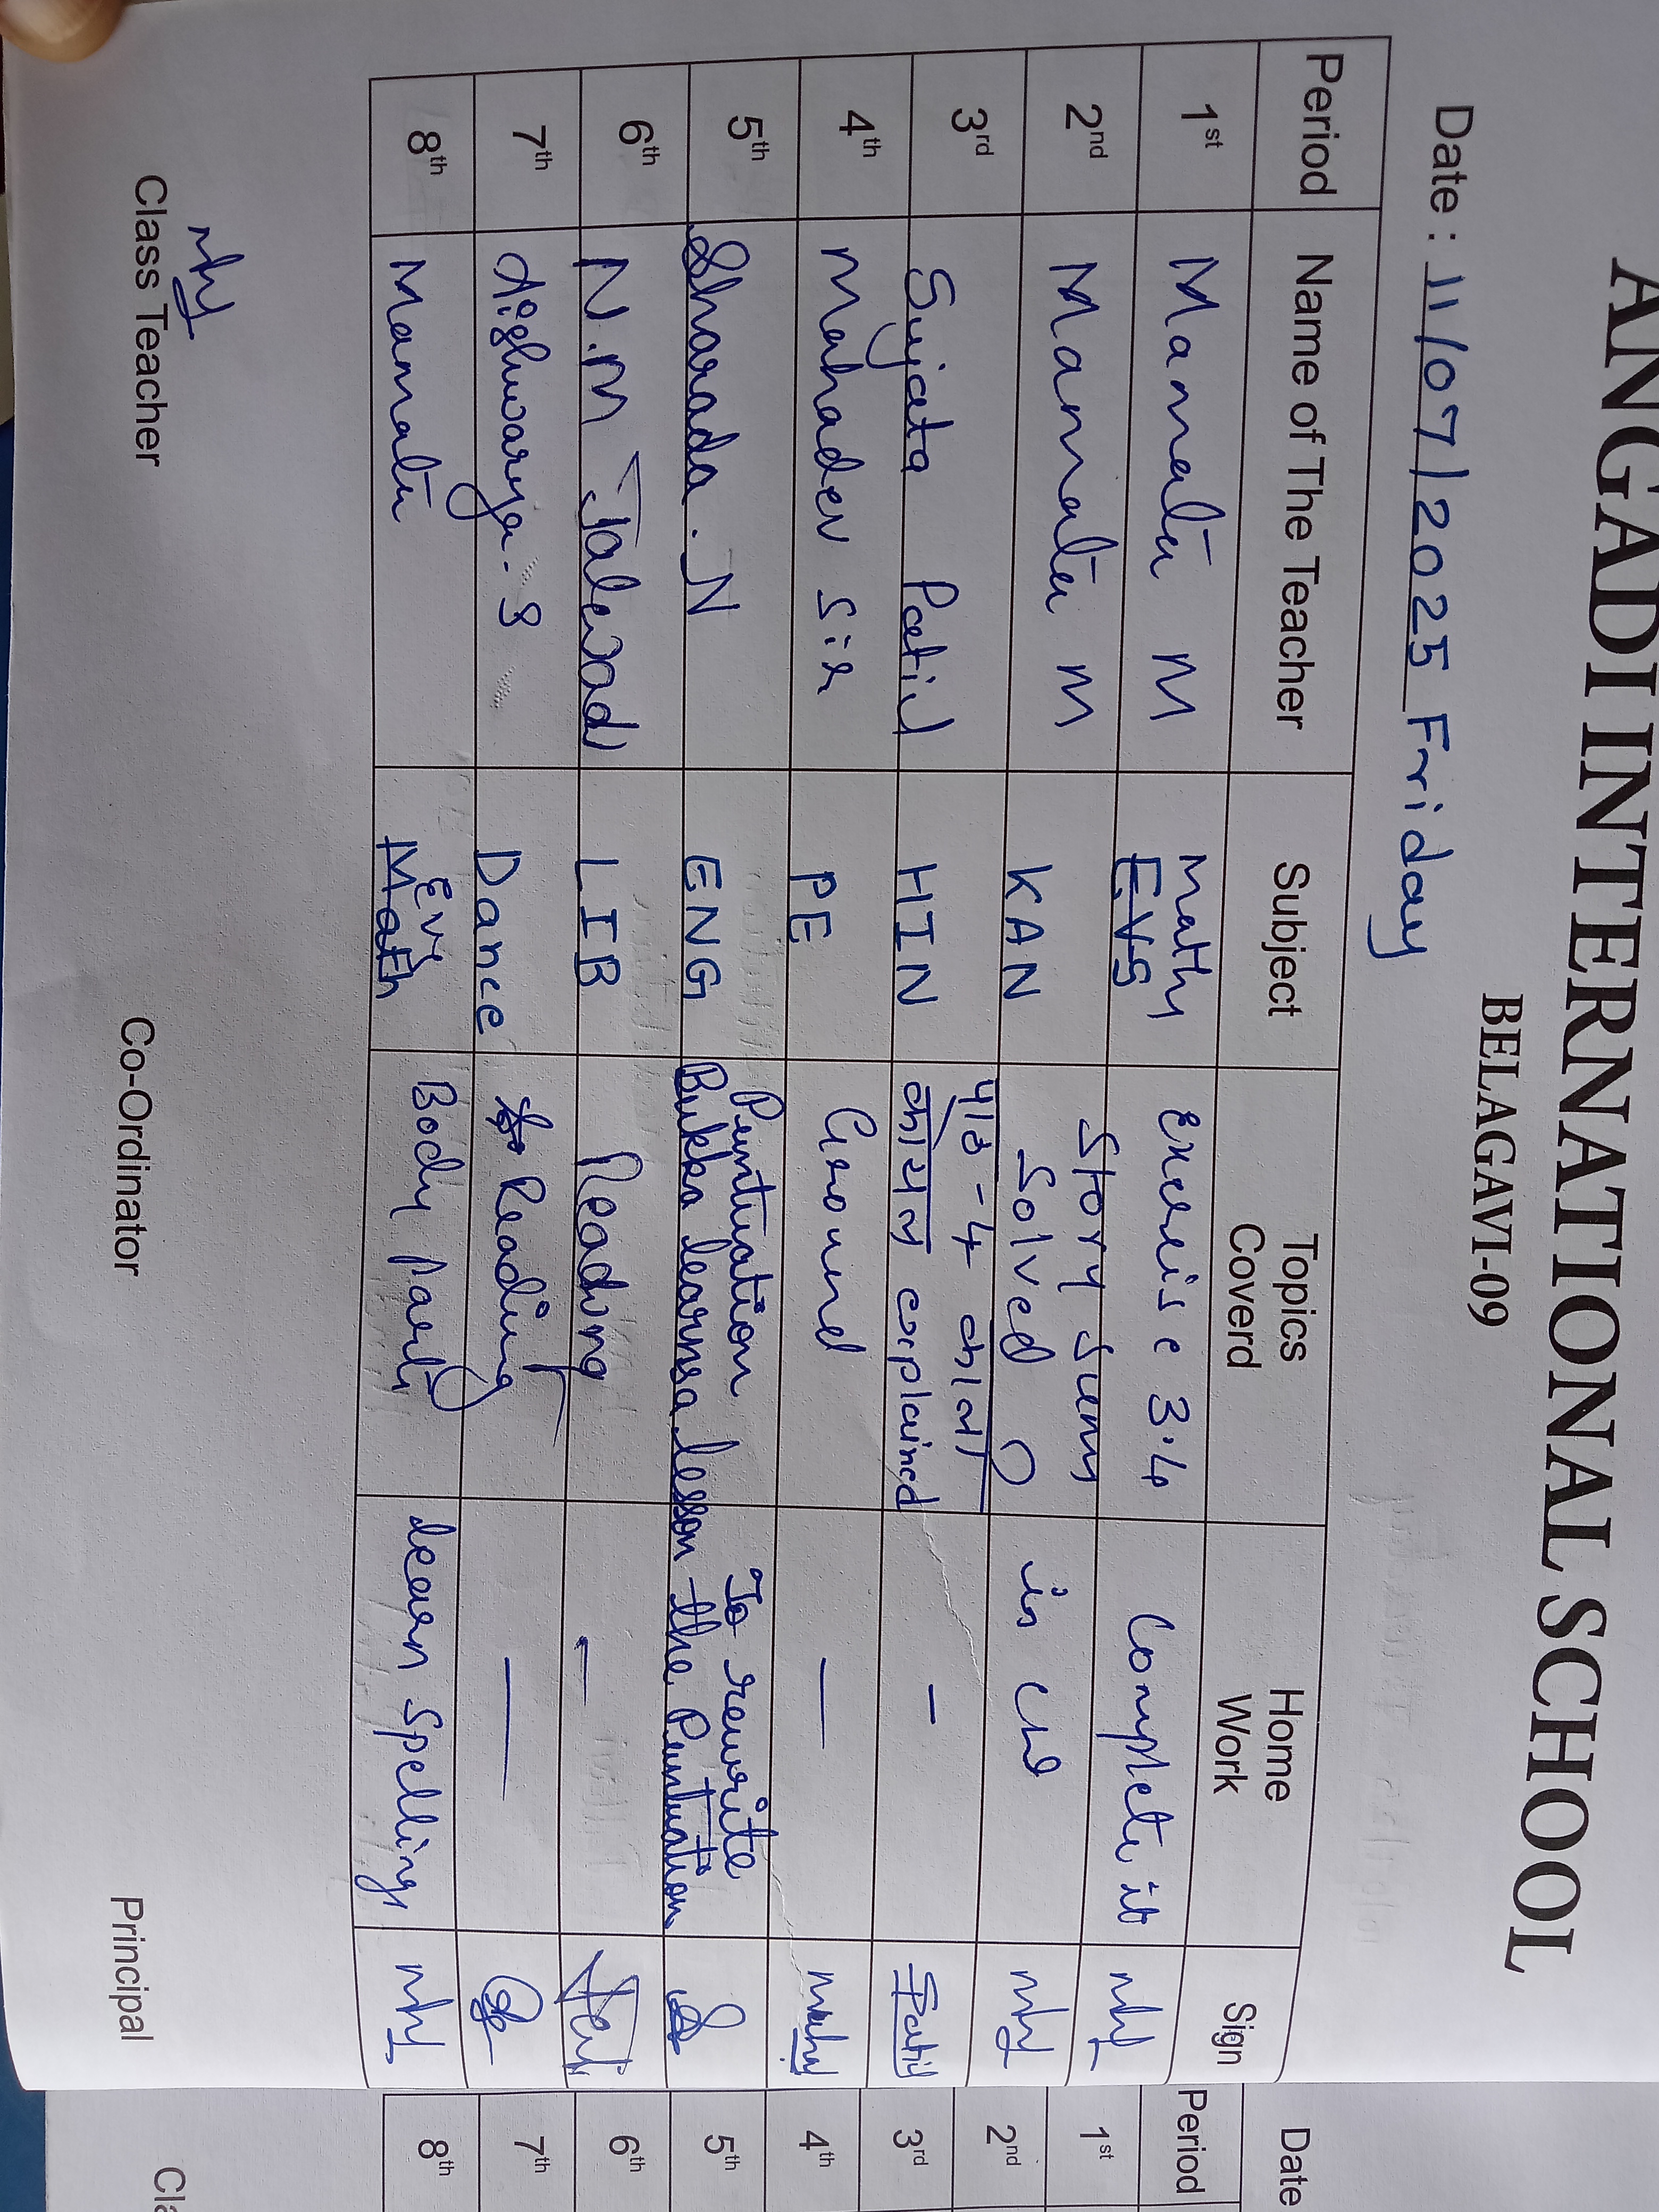 ANGADI INTERNATIONAL SCHOOL
BELAGAVI-09
Date : 11/07/2025 Friday
Period Name of The Teacher Subject Topics Coverd Home Work Sign
1st Mamata M Maths EVS Exercise 3.4 Complete it
2nd Mamata M KAN Story Sums Solved in CW
3rd Sujata Patil HIN पाठ-4 काला कोयल explained - Patil
4th Mahadev Sir PE Ground —
5th Sharada. N ENG Puntuation Bukka learns a lesson To rewrite the Puntuation
6th N.M Talewad LIB Reading -
7th Aishwarya. S Dance Reading —
8th Mamata EVS Math Body Parts learn Spellings
Class Teacher Co-Ordinator Principal
Date
Period
1st
2nd
3rd
4th
5th
6th
7th
8th
Cla